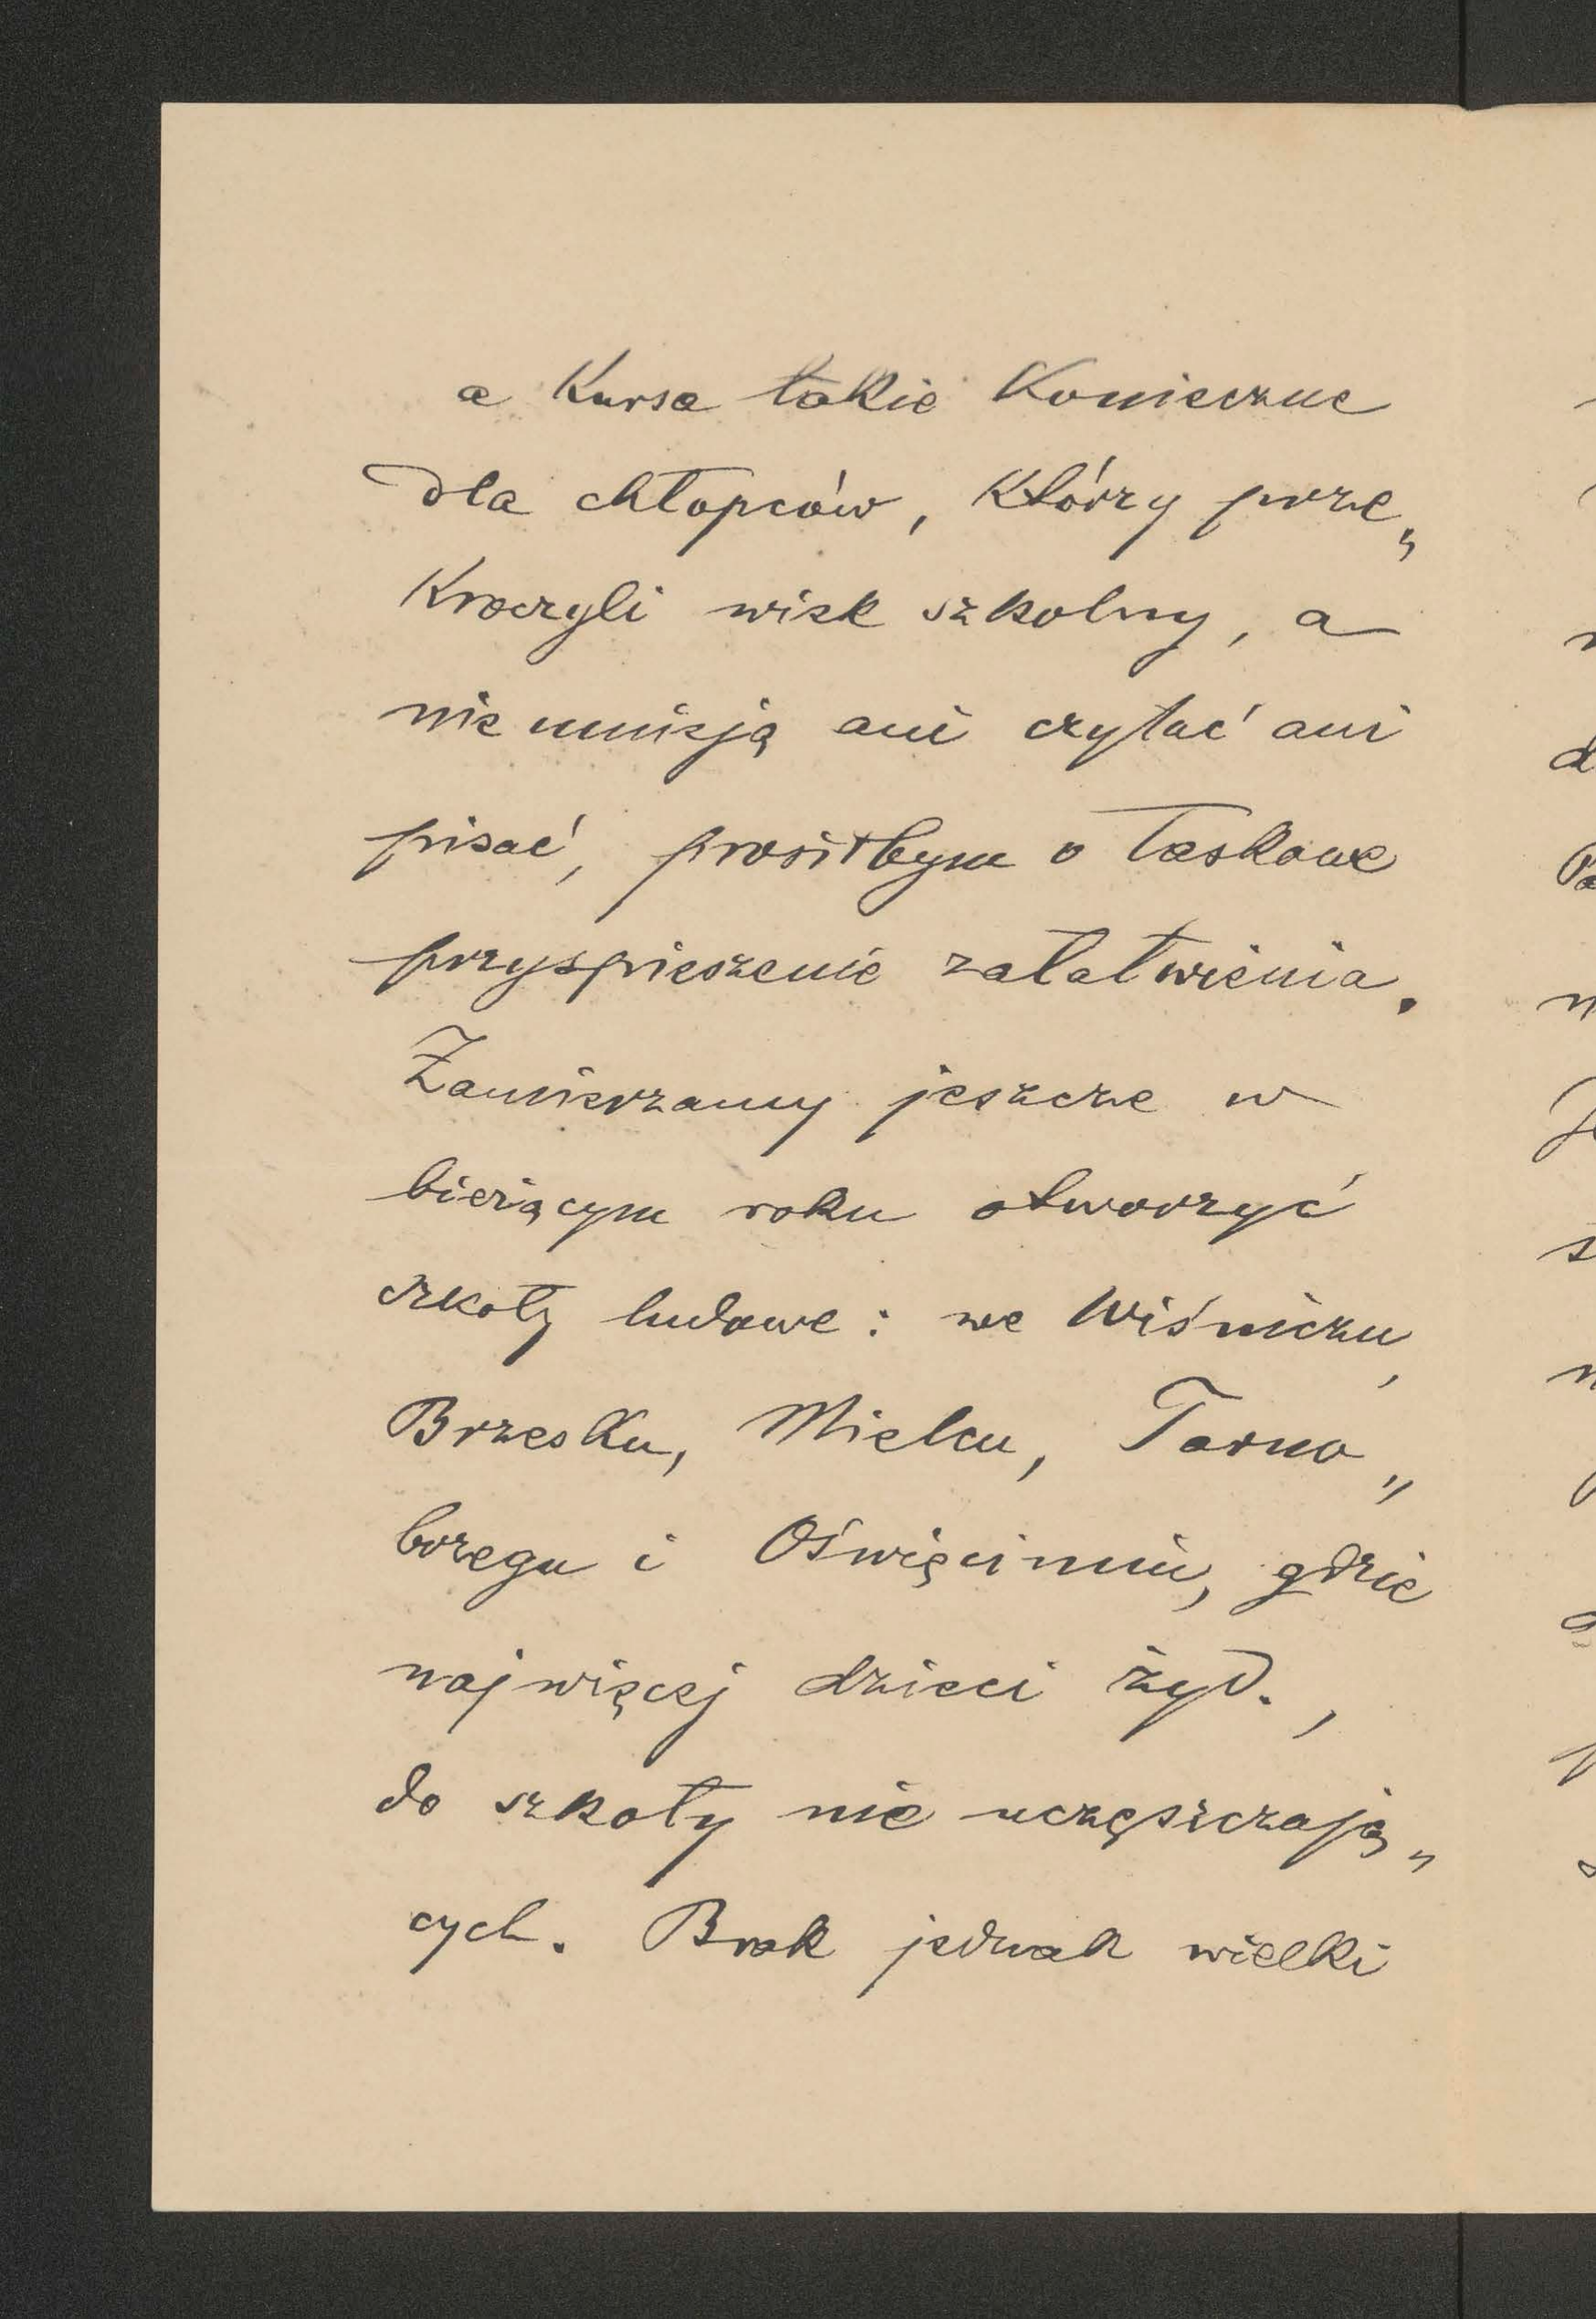 a kursa takie konieczne
dla chłopców, którzy prze„
kroczyli wiek szkolny, a
nie umieją ani czytać ani
pisać, prosiłbym o łaskawe
przyspieszenie załatwienia.
Zamierzamy jeszcze w
bieżącym roku otworzyć
szkoły ludowe: we Wiśniczu,
Brzesku, Mielcu, Tarno„
brzegu i Oświęcimiu, gdzie
najwięcej dzieci żyd.,
do szkoły nie uczęszczają„
cych. Brak jednak wielki